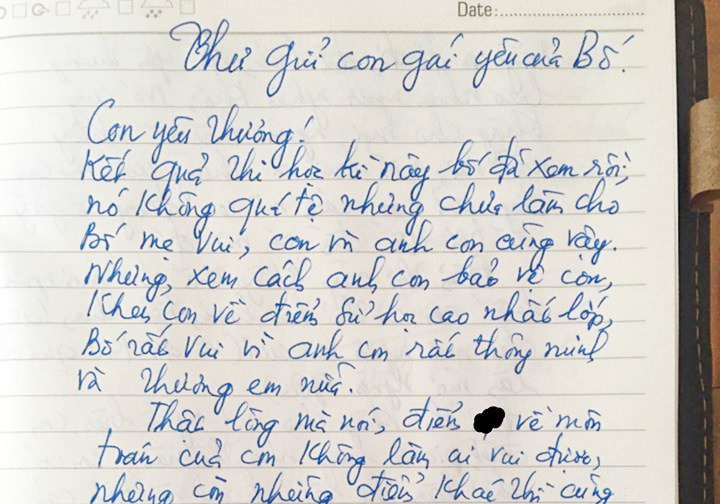 Date:
Thư gửi con gái yêu của Bố.
Con yêu thương!
Kết quả thi học kì này bố đã xem rồi,
nó không quá tệ nhưng chưa làm cho
Bố mẹ vui, con và anh con cũng vậy.
Nhưng, xem cách anh con bảo vệ con,
khen con về điểm Sử học cao nhất lớp,
Bố rất vui vì anh con rất thông minh
và thương em nữa.
Thật lòng mà nói, điểm về môn
toán của con không làm ai vui được,
nhưng còn những điểm khác thì cũng